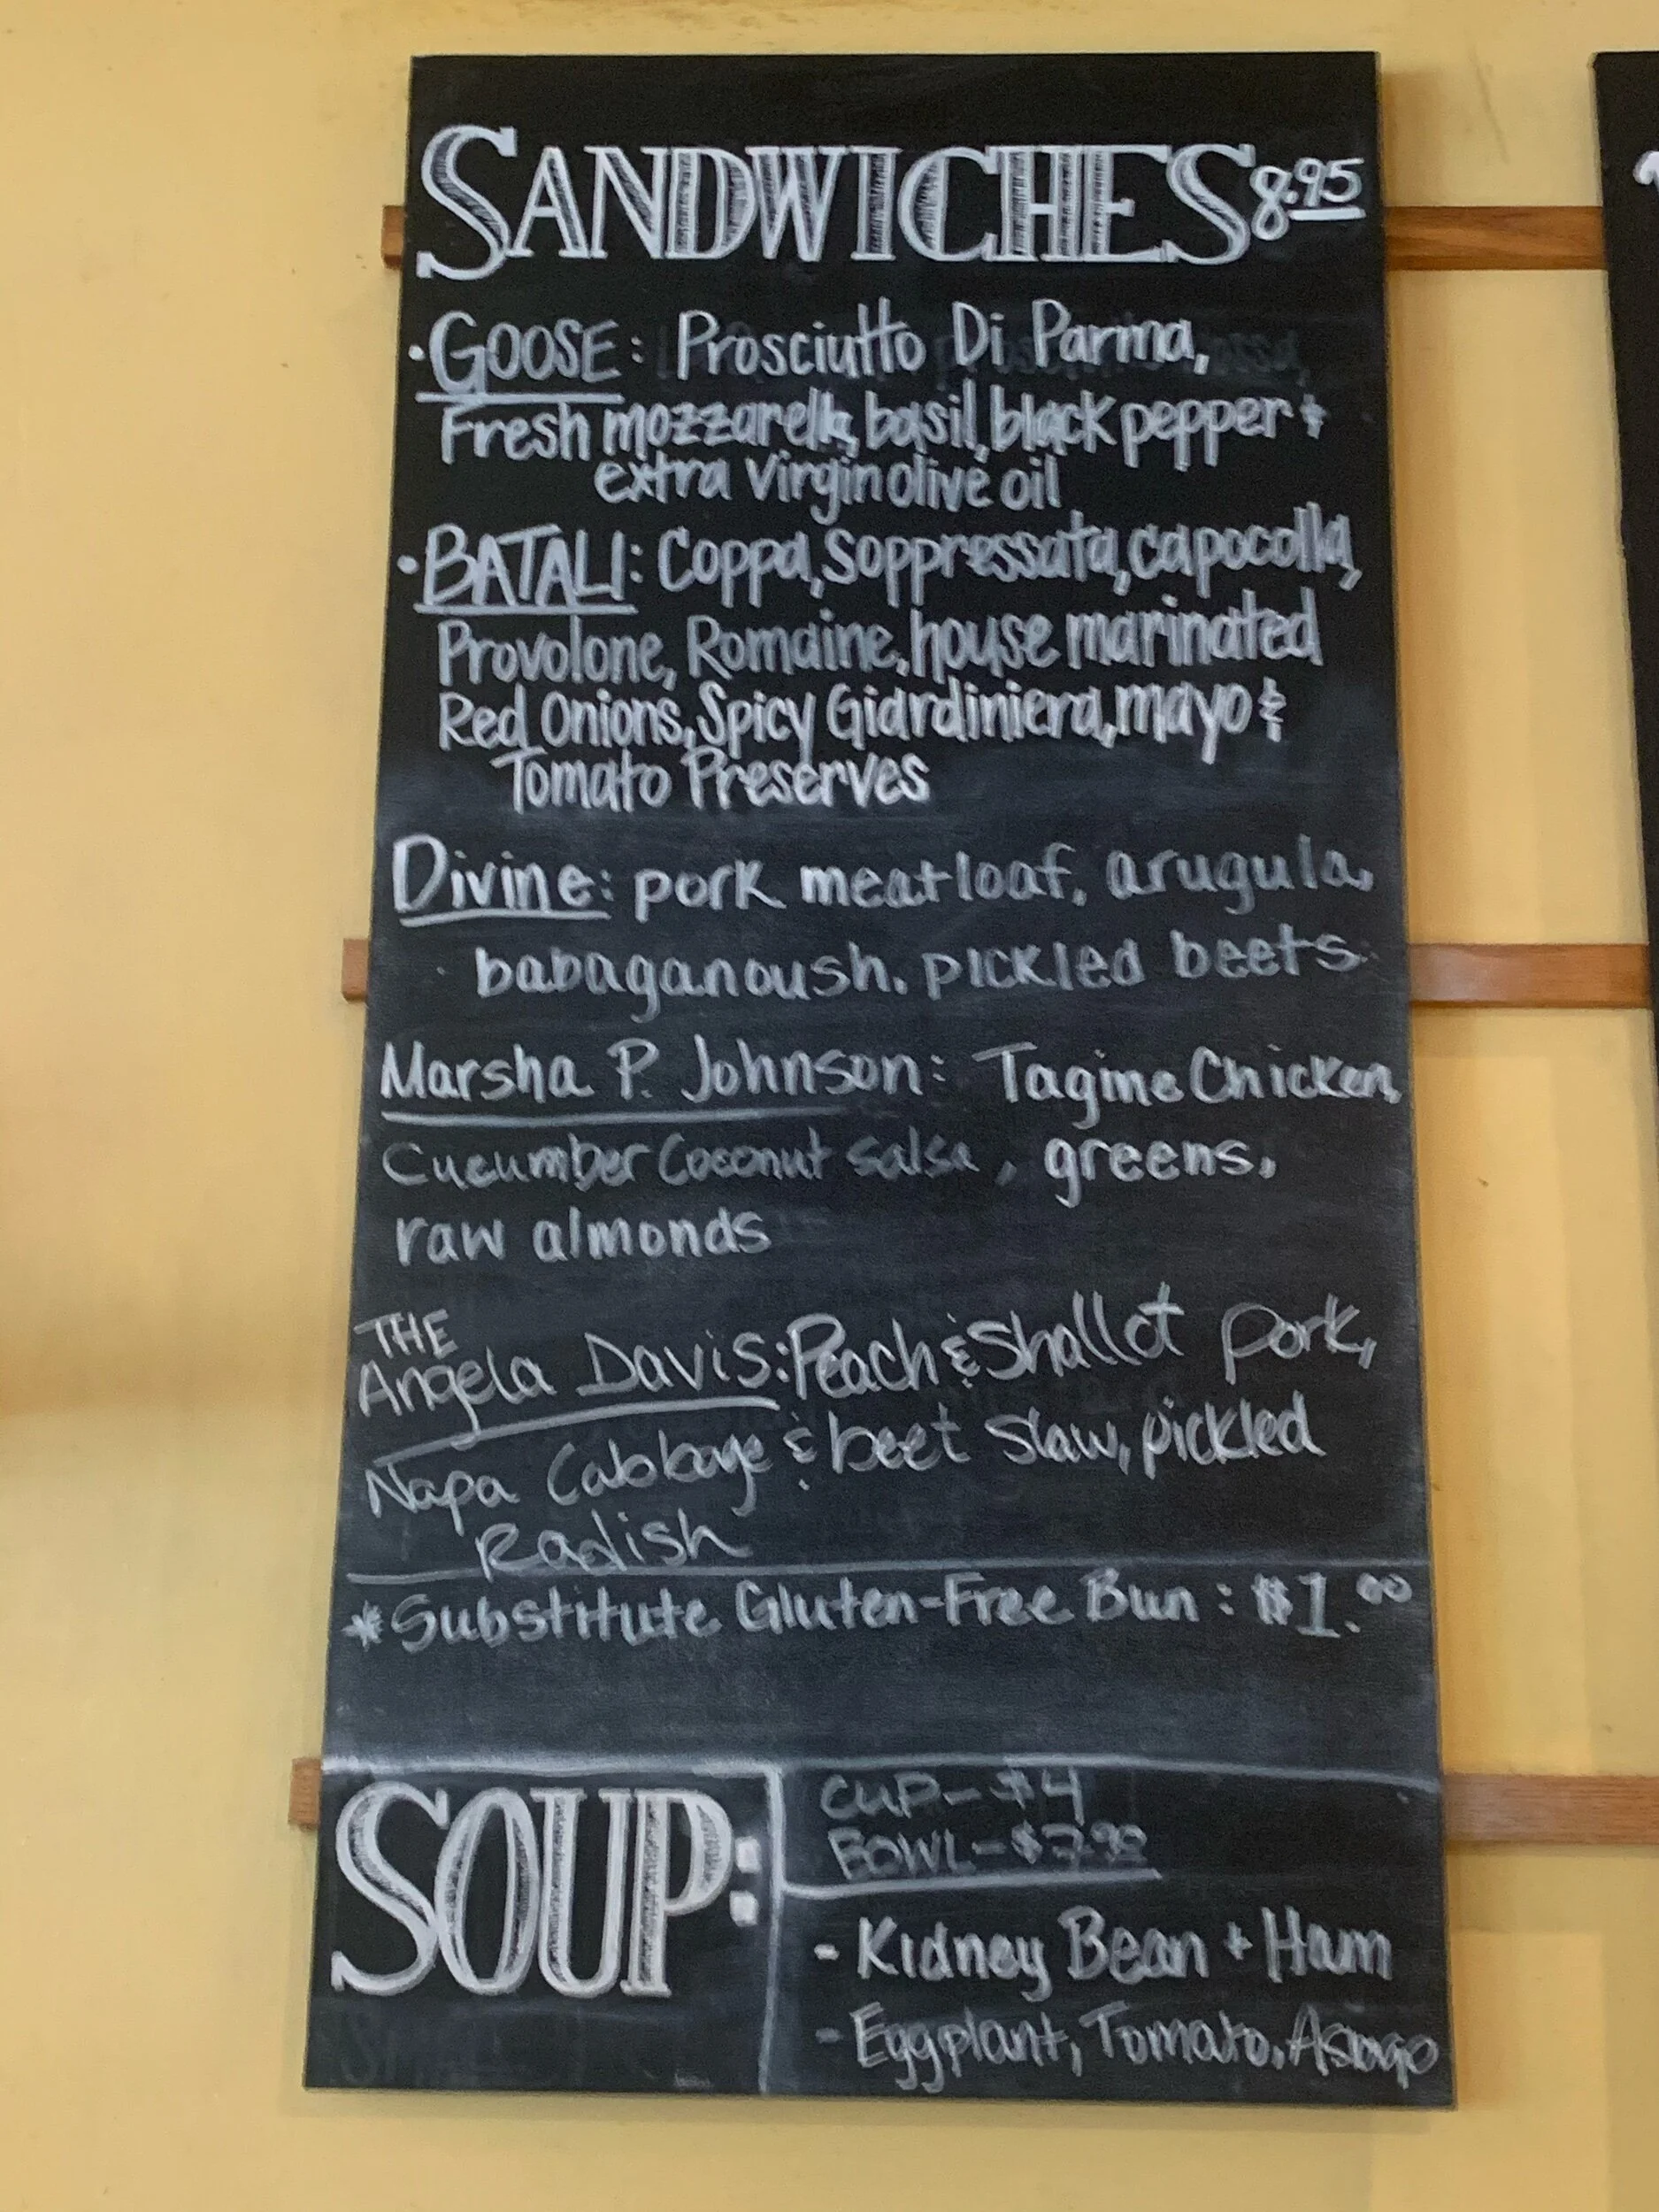 SANDWICHES 8.95
· GOOSE: Prosciutto Di Parma,
Fresh mozzarella, basil, black pepper &
extra virgin olive oil
· BATALI: Coppa, Soppressata, capocolla,
Provolone, Romaine, house marinated
Red Onions, Spicy Giardiniera, mayo &
Tomato Preserves
Divine: pork meatloaf, arugula,
babaganoush, pickled beets
Marsha P. Johnson: Tagine Chicken,
Cucumber Coconut salsa, greens,
raw almonds
THE
Angela Davis: Peach & Shallot pork,
Napa Cabbage & beet slaw, pickled
Radish
*Substitute Gluten-Free Bun: $1.00
SOUP:
CUP- $4
BOWL-
- Kidney Bean + Ham
- Eggplant, Tomato, Asiago